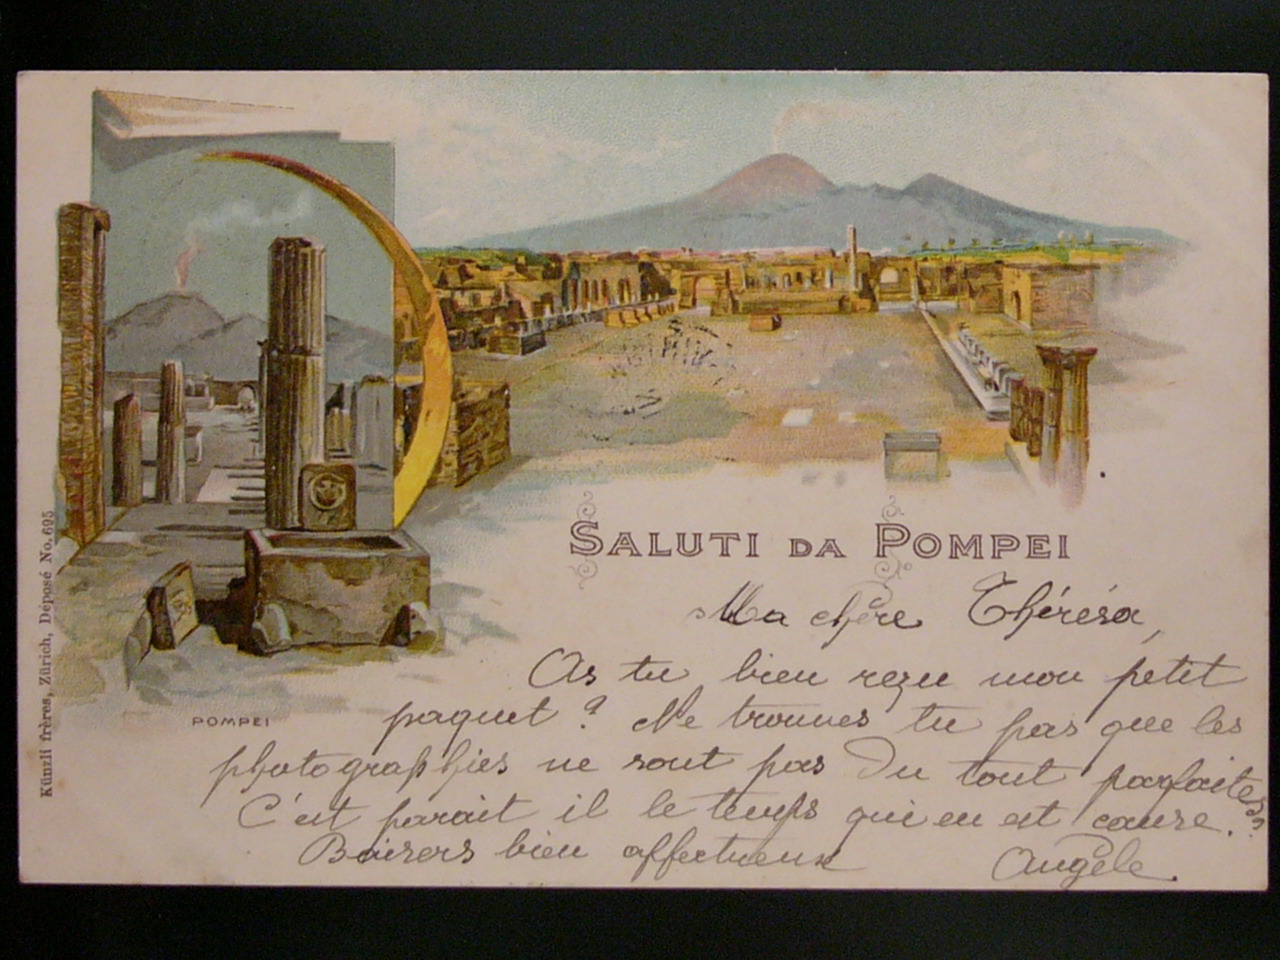 SALUTI DA POMPEI
Ma chère Thérésa,
As tu bien reçu mon petit
paquet ? Ne trouves tu pas que les
photographies ne sont pas du tout parfaites ?
C'est parait il le temps qui en est cause.
Baisers bien affectueux Angèle.
POMPEI
Künzli frères, Zürich, Déposé No. 695